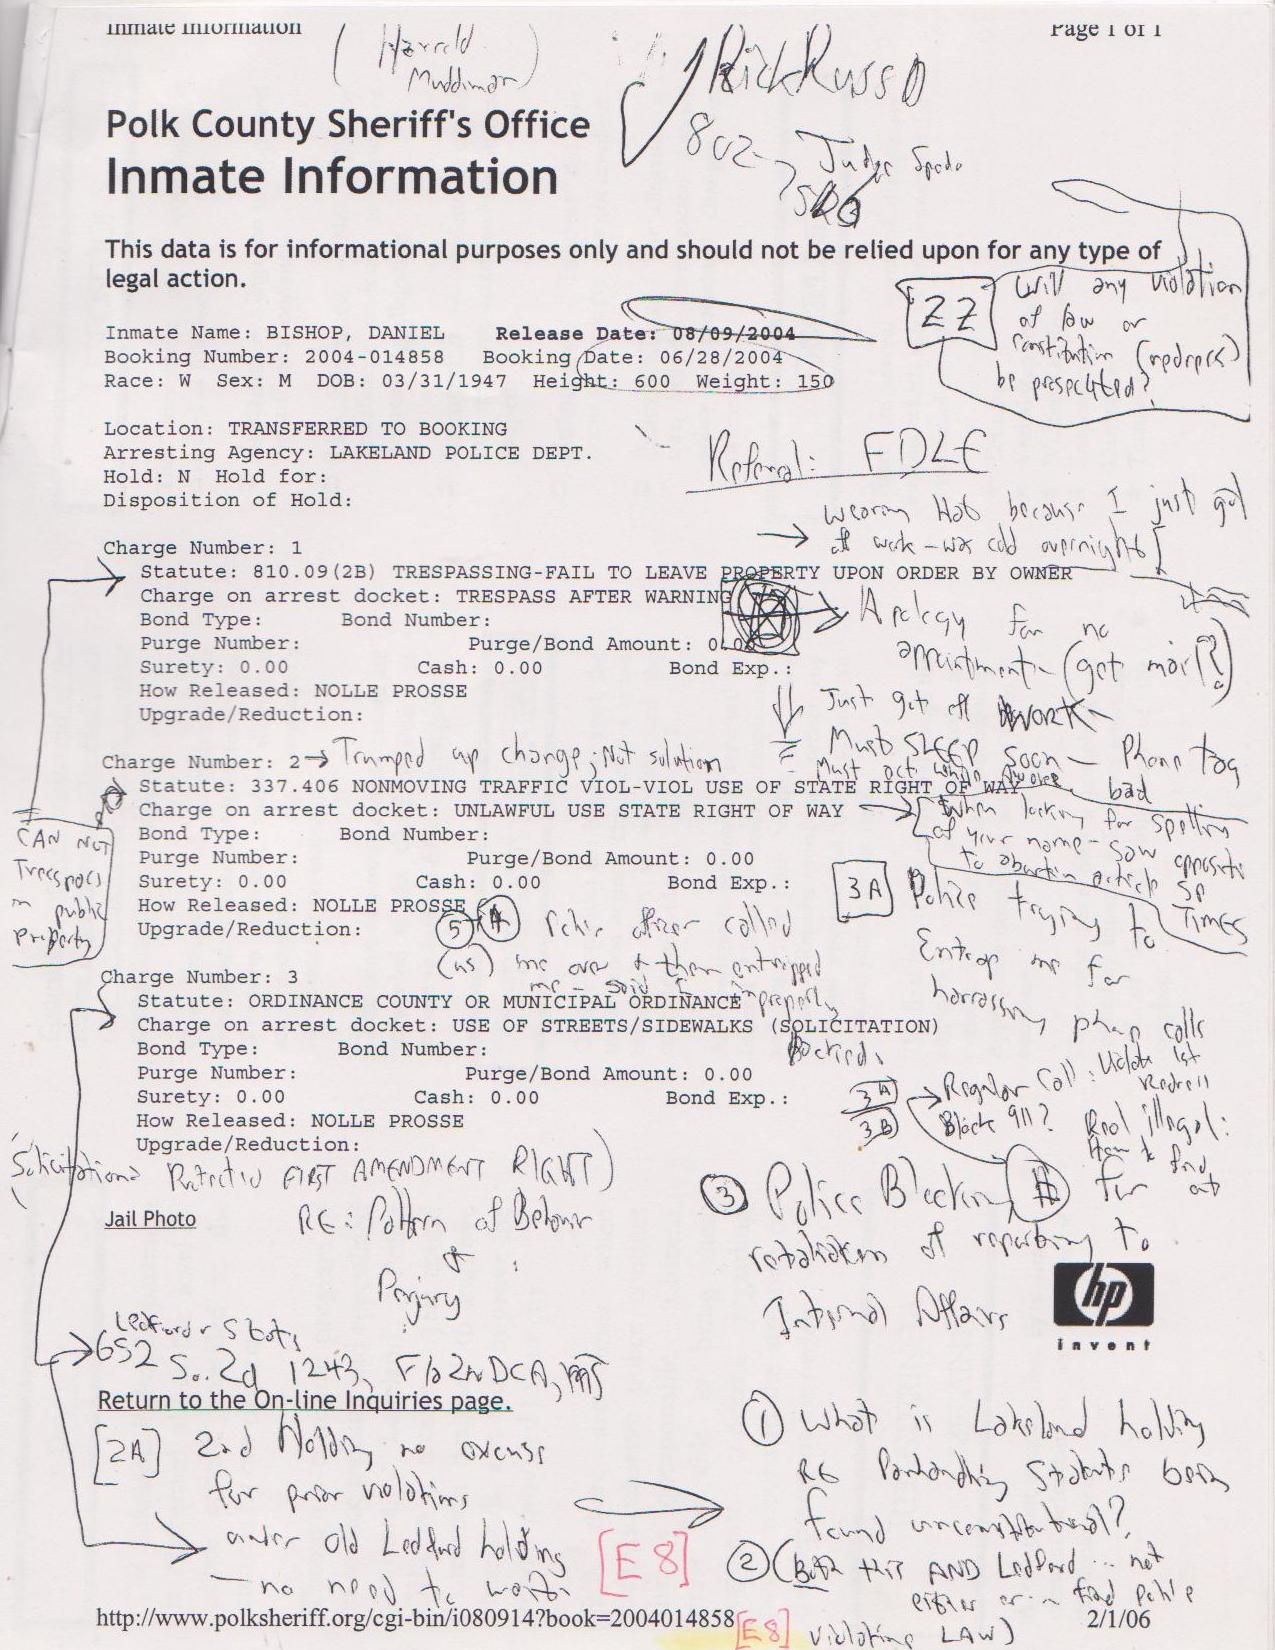 Inmate Information
Page 1 of 1
(Harrold
Muddiman)
Rick Russo
802
Judge
Polk County Sheriff's Office
Inmate Information
This data is for informational purposes only and should not be relied upon for any type of
legal action.
ZZ
Will any violation
of law or
constitution (redress)
be prosecuted?
Inmate Name: BISHOP, DANIEL Release Date: 08/09/2004
Booking Number: 2004-014858 Booking Date: 06/28/2004
Race: W Sex: M DOB: 03/31/1947 Height: 600 Weight: 150
Location: TRANSFERRED TO BOOKING
Arresting Agency: LAKELAND POLICE DEPT.
Hold: N Hold for:
Disposition of Hold:
Referral: FDLE
Wearing Hat because I just got
off work - was cold overnight
Charge Number: 1
Statute: 810.09(2B) TRESPASSING-FAIL TO LEAVE PROPERTY UPON ORDER BY OWNER
Charge on arrest docket: TRESPASS AFTER WARNING
Bond Type: Bond Number:
Purge Number: Purge/Bond Amount: 0.00
Surety: 0.00 Cash: 0.00 Bond Exp.:
How Released: NOLLE PROSSE
Upgrade/Reduction:
Apology for no
appointment - (get mail?)
Just got off WORK -
Must SLEEP soon - Phone tag
bad
Must act while awake
Charge Number: 2 → Trumped up charge; Not solution
Statute: 337.406 NONMOVING TRAFFIC VIOL-VIOL USE OF STATE RIGHT OF WAY
Charge on arrest docket: UNLAWFUL USE STATE RIGHT OF WAY
Bond Type: Bond Number:
Purge Number: Purge/Bond Amount: 0.00
Surety: 0.00 Cash: 0.00 Bond Exp.:
How Released: NOLLE PROSSE
Upgrade/Reduction:
When looking for spelling
of your name - saw opposite
to abortion article SP
TIMES
CAN NOT
Trespass
in public
Property
3A Police trying to
Entrap me for
harrassing phone calls
5 A Police officer called
(us) me over & then entrapped
me - said I improperly
Charge Number: 3
Statute: ORDINANCE COUNTY OR MUNICIPAL ORDINANCE
Charge on arrest docket: USE OF STREETS/SIDEWALKS (SOLICITATION)
Bond Type: Bond Number:
Purge Number: Purge/Bond Amount: 0.00
Surety: 0.00 Cash: 0.00 Bond Exp.:
How Released: NOLLE PROSSE
Upgrade/Reduction:
3A
3B
Regular call: Violate 1st
Redress
Block 911? Real illegal:
How to find
out
(Solicitation = Protected FIRST AMENDMENT RIGHT)
Jail Photo
RE: Pattern of Behavior
&
Perjury
3 Police Blocking # for
retaliation of reporting to
Internal Affairs
hp
invent
Ledford v State,
652 So. 2d 1243, Fla 2nd DCA, 1995
Return to the On-line Inquiries page.
[2A] 2nd Holding no excuse
for prior violations
under old Ledford holding
- no need to wait
[E8]
1 What is Lakeland holding
RE Panhandling Statutes being
found unconstitutional?
2 (Both this AND Ledford ... not
either or - find police
violating LAW)
http://www.polksheriff.org/cgi-bin/i080914?book=2004014858
[E8]
2/1/06